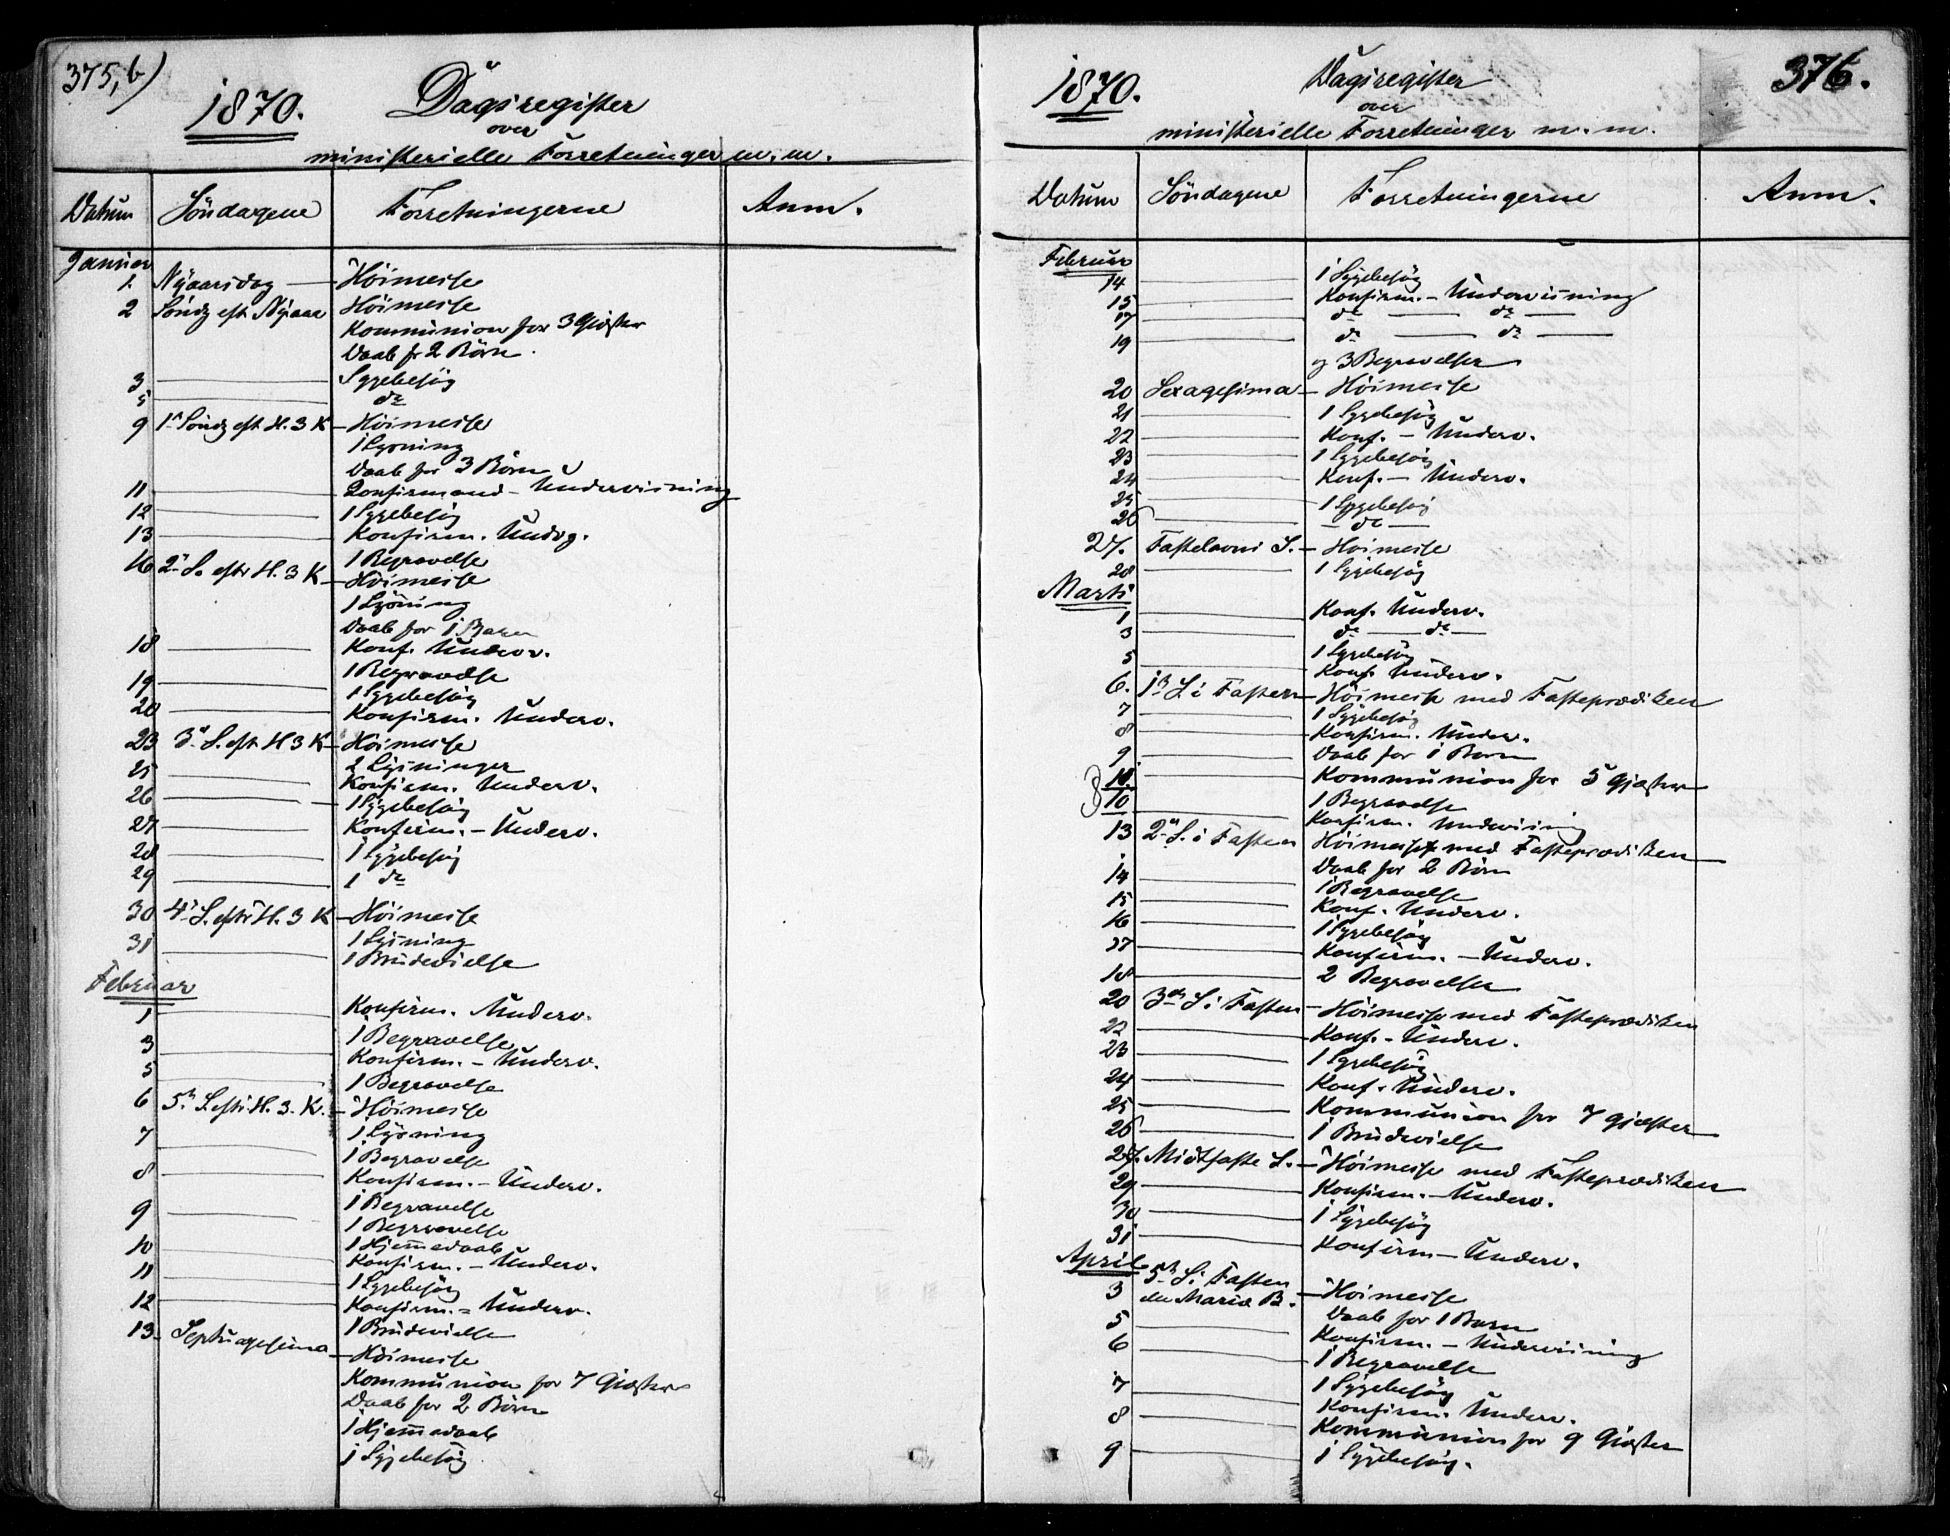 375,b)
1870. Dagsregister
over
ministerielle Forretninger m.m.
Datum Söndagene Forretningerne Anm.
Januar
1. Nÿaarsdag — Höimesse
2 Söndg eft Nÿaar Höimesse
Kommunion for 3 Gjæster
Daab fr 2 Börn.
3 Sygebesög
5 do
9 1ste Söndg eft H. 3 K — Höimesse
1 Lysning
Daab for 3 Börn
11 Confirmand - Underviisning
12 1 Sygebesög
13 Konfirm. Undvg.
1 Begravelse
16 2n S. eftr H. 3 K — Höimesse
1 Lysning
Daab for 1 Barn
18 Konf. Underv.
1 Begravelse
19 1 Sygebesög
20 Konfirm. Underv.
23 3die S. eft H 3 K — Höimesse
2 Lysninger
25 Konfirm. Underv.
26 1 Sygebesög
27 Konfirm. - Underv.
28 1 Sygebesög
29 1 do
30 4de S. eftr H. 3 K — Höimesse
1 Lysning
31 1 Brudevielse
Februar
1 Konfirm. Underv.
1 Begravelse
3 Konfirm. - Underv.
5 1 Begravelse
6 5te S. eftr H. 3. K. — Höimesse
1 Lysning
7 1 Begravelse
8 Konfirm. - Underv.
1 Begravelse
9 1 Begravelse
1 Hjem̅edaab
10 Konfirm. - Underv.
11 1 Sygebesög
12 Konfirm. - Underv.
1 Brudevielse
13. Septuagesima — Höimesse
Kommunion for 7 Gjæster
Daab for 2 Börn
1 Hjem̅edaab
1 Sygebesög
1870. Dagsregister 376.
over
ministerielle Forretninger m.m.
Datum Söndagene Forretningerne Anm.
Februar
14 1 Sygebesög
15 Konfirm. - Underviisning
17 do — do —
19 do — do —
og 3 Begravelser
20 Sexagesima — Höimesse
21 1 Sygebesög
22 Konf. - Underv.
23 1 Sygebesög
24 Konf. - Underv.
25 1 Sygebesög
26 — do —
27. Fastelavns S. — Höimesse
28 1 Sygebesög
Marts
1 Konf. Underv.
3 do — do —
5 1 Sygebesög
Konf. Underv.
6. 1ste S. i Fasten — Höimesse med Fasteprædiken
7 1 Sygebesög
8 Konfirm. Underv.
9 Daab for 1 Barn
11 Kommunion for 5 Gjæster
10 1 Begravelse
Konfirm. Underviisning
13 2n S. i Fasten Höimesse med Fasteprædiken
Daab for 2 Börn
14 1 Begravelse
15 Konf. Underv.
16 1 Sygebesög
17 Konfirm. - Underv.
18 2 Begravelser
20 3die S. i Fasten — Höimesse med Fasteprædiken
22 Konf. - Underv.
23 1 Sygebesög
24 Konf. Underv.
25 Kommunion for 7 Gjæster
26 1 Brudevielse
27. Midfaste S. — Höimesse med Fasteprædiken
29 Konfirm. - Underv.
30 1 Sygebesög
31 Konfirm - Underv.
April
3 5te S. i Fasten
ell. Mariæ B. — Höimesse
Daab for 1 Barn
5 Konfirm. - Underviisning
6 1 Begravelse
1 Sygebesög
7 Konfirm. Underv.
8 Kommunion for 9 Gjæster
9 1 Sygebesög.